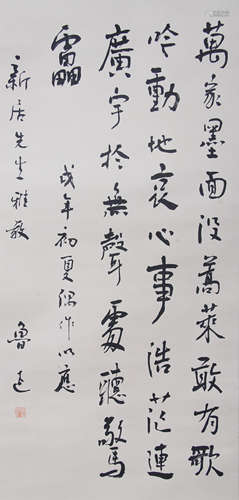 萬家墨面没蒿萊敢有歌
吟動地哀心事浩茫連
廣宇於無聲處聽驚
靁
戌年初夏偶作以應
新居先生雅教
魯迅